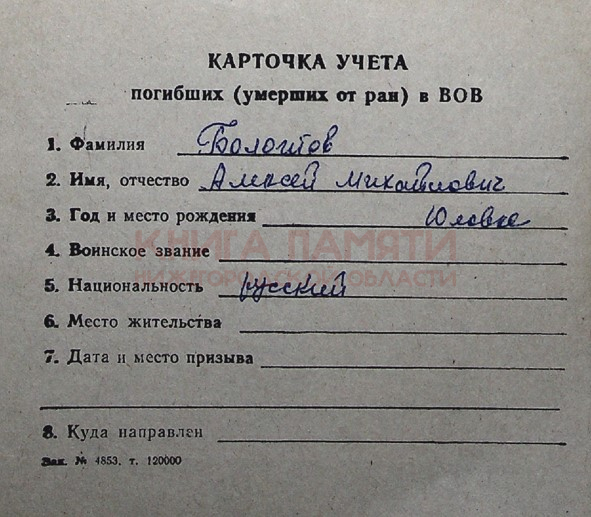 КАРТОЧКА УЧЕТА
погибших (умерших от ран) в ВОВ
1. Фамилия Бологтов
2. Имя, отчество Алексей Михайлович
3. Год и место рождения Юловка
КНИГА ПАМЯТИ
4. Воинское звание
НИЖЕГОРОДСКОЙ ОБЛАСТИ
5. Национальность русский
6. Место жительства
7. Дата и место призыва
8. Куда направлен
Зак. № 4853. т. 120000